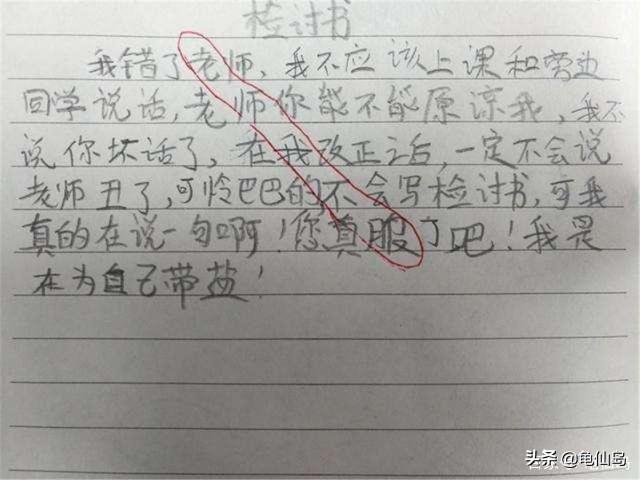 检讨书
我错了老师，我不应该上课和旁边
同学说话，老师你能不能原谅我，我不
说你坏话了，在我改正之后，一定不会说
老师丑了，可怜巴巴的不会写检讨书，可我
真的在说一句啊！您真服了吧！我是
在为自己带盐！
头条 @龟仙岛